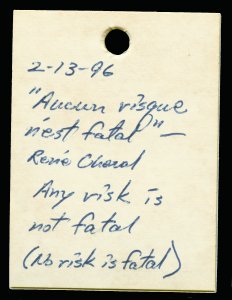 2-13-96
"Aucun risque
n'est fatal" —
René Charal
Any risk is
not fatal
(No risk is fatal)